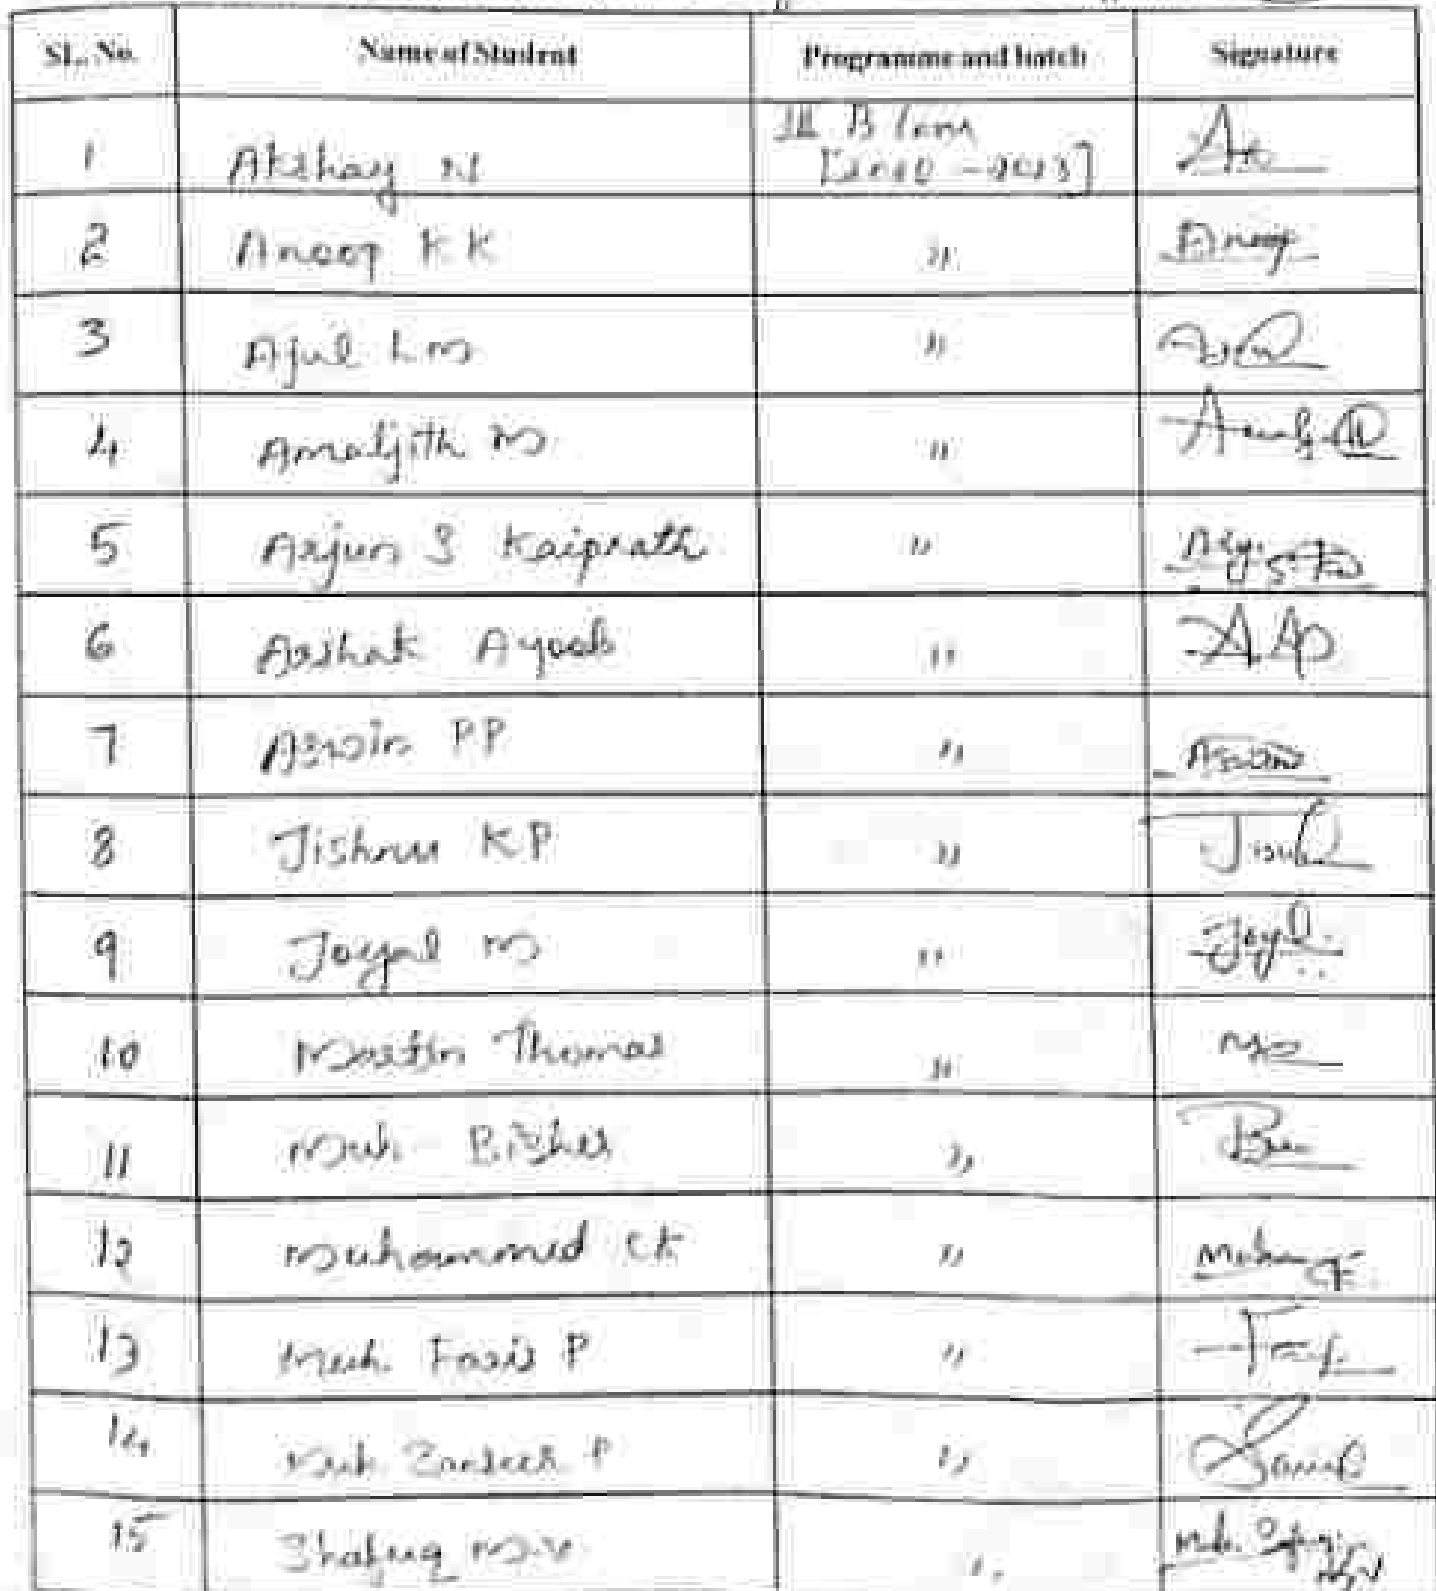 Sl. No. Name of Student Programme and batch Signature
1 Akshay N III B Com
[2020 - 2023]
2 Anoop KK " Anoop
3 Ajul L M "
4 Amaljith M "
5 Arjun S Kaiprath "
6 Arshak Ayoob " A. Ap
7 Aswin PP " Aswin
8 Jishnu KP "
9 Joyal M " Joyal
10 Martin Thomas "
11 Muh Bisher "
12 Muhammed CK "
13 Muh. Faris P "
14 Muh P "
15 Shafuq M.V "